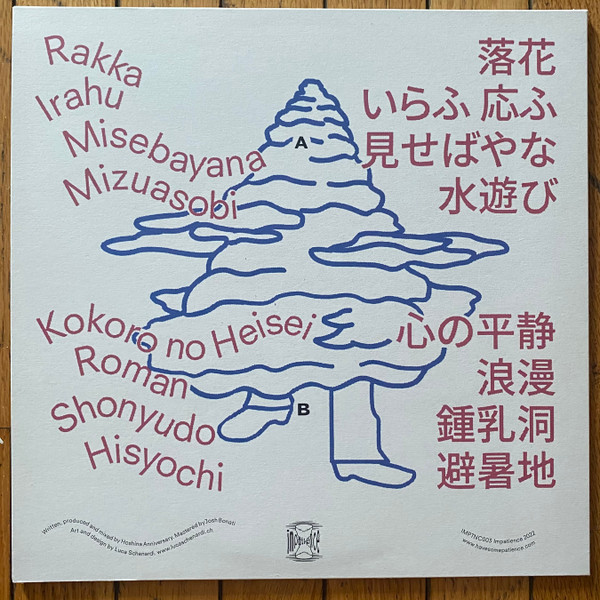 Rakka
Irahu
Misebayana
Mizuasobi
落花
いらふ 応ふ
見せばやな
水遊び
A
Kokoro no Heisei
Roman
Shonyudo
Hisyochi
心の平静
浪漫
鍾乳洞
避暑地
B
Written, produced and mixed by Hoshina Anniversary. Mastered by Josh Bonati
Art and design by Luca Schenardi. www.lucaschenardi.ch
impatience
IMPTNC003 Impatience 2022
www.havesomepatience.com